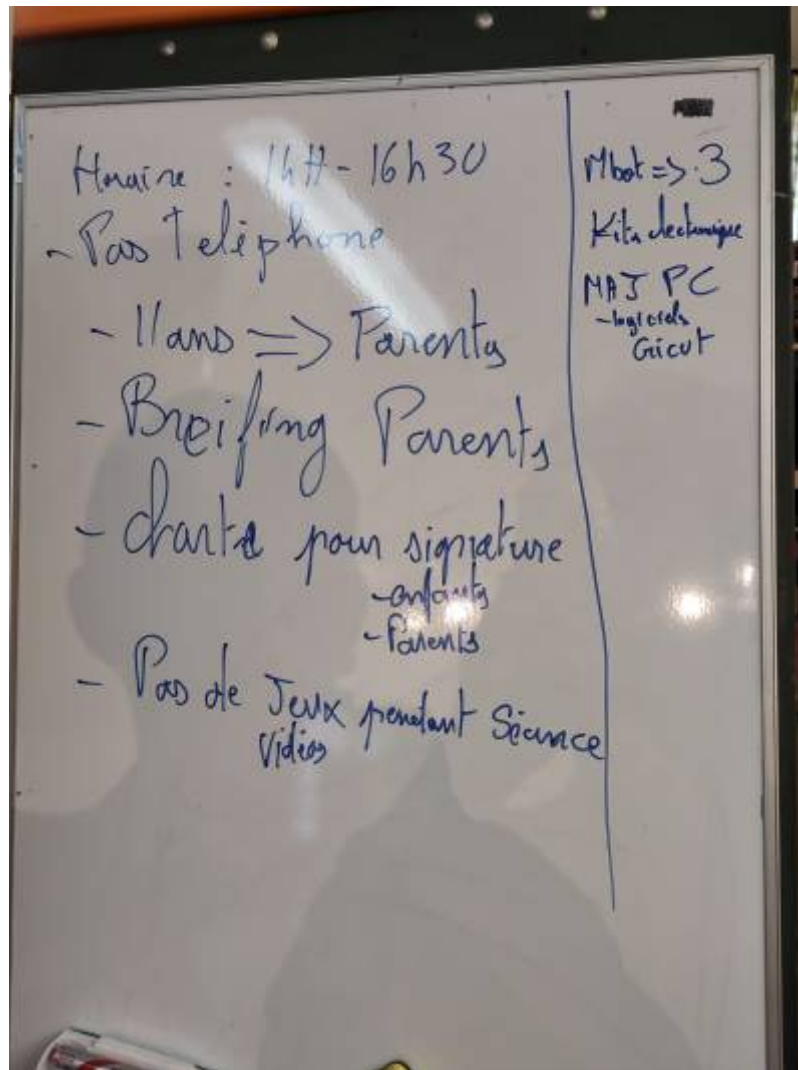 Horaire : 14H - 16h30
- Pas Teléphone
- 11ans => Parents
- Breifing Parents
- charte pour signature
- enfants
- Parents
- Pas de Jeux pendant Séance
Vidéos
Mbot => 3
Kits électronique
MAJ PC
- logiciels
Gicut